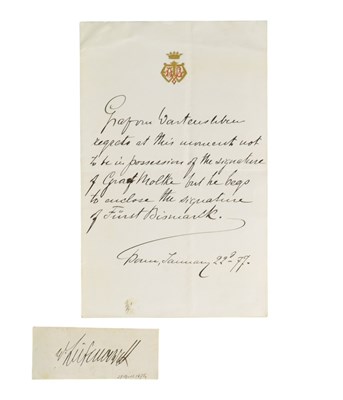 Graf von Wartensleben
regrets at this moment not
to be in possession of the signature
of Graf Moltke but he begs
to enclose the signature
of Fürst Bismarck.
January 22d 77.